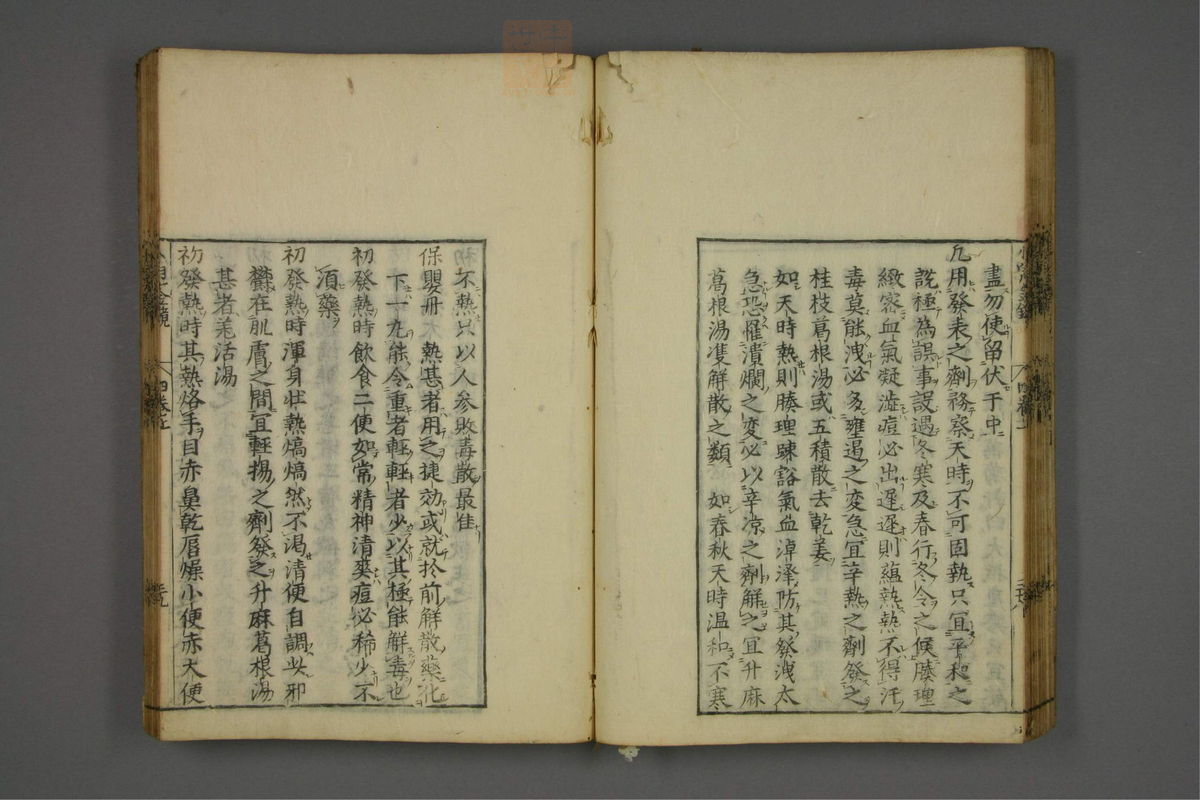 盡勿使留伏于中
凢用發表之劑務察天時不可固執只冝平和之
說極為誤事設遇冬寒及春行冬令之候腠理
緻宻血氣凝澁痘必出遲遲則藴熱熱不得汗
毒莫能洩必多壅遏之変急冝辛熱之劑發之
桂枝葛根湯或五積散去乾姜
如天時熱則腠理踈豁氣血淖澤防其發洩太
急恐惟潰爛之変必以辛凉之劑解之冝升麻
葛根湯雙解散之類　如春秋天時温和不寒
不熱只以人参敗毒散最佳
保嬰丹　熱甚者用之捷効或就扵前解散藥化
下一九能令重者輕輕者少以其極能解毒也
初發熱時飲食二便如常精神清爽痘必稀少不
湏藥
初發熱時渾身壮熱熇熇然不渴清便自調此邪
欝在肌膚之間冝輕揚之劑發之升麻葛根湯
甚者羗活湯
初發熱時其熱烙手目赤鼻乾唇燥小便赤大便